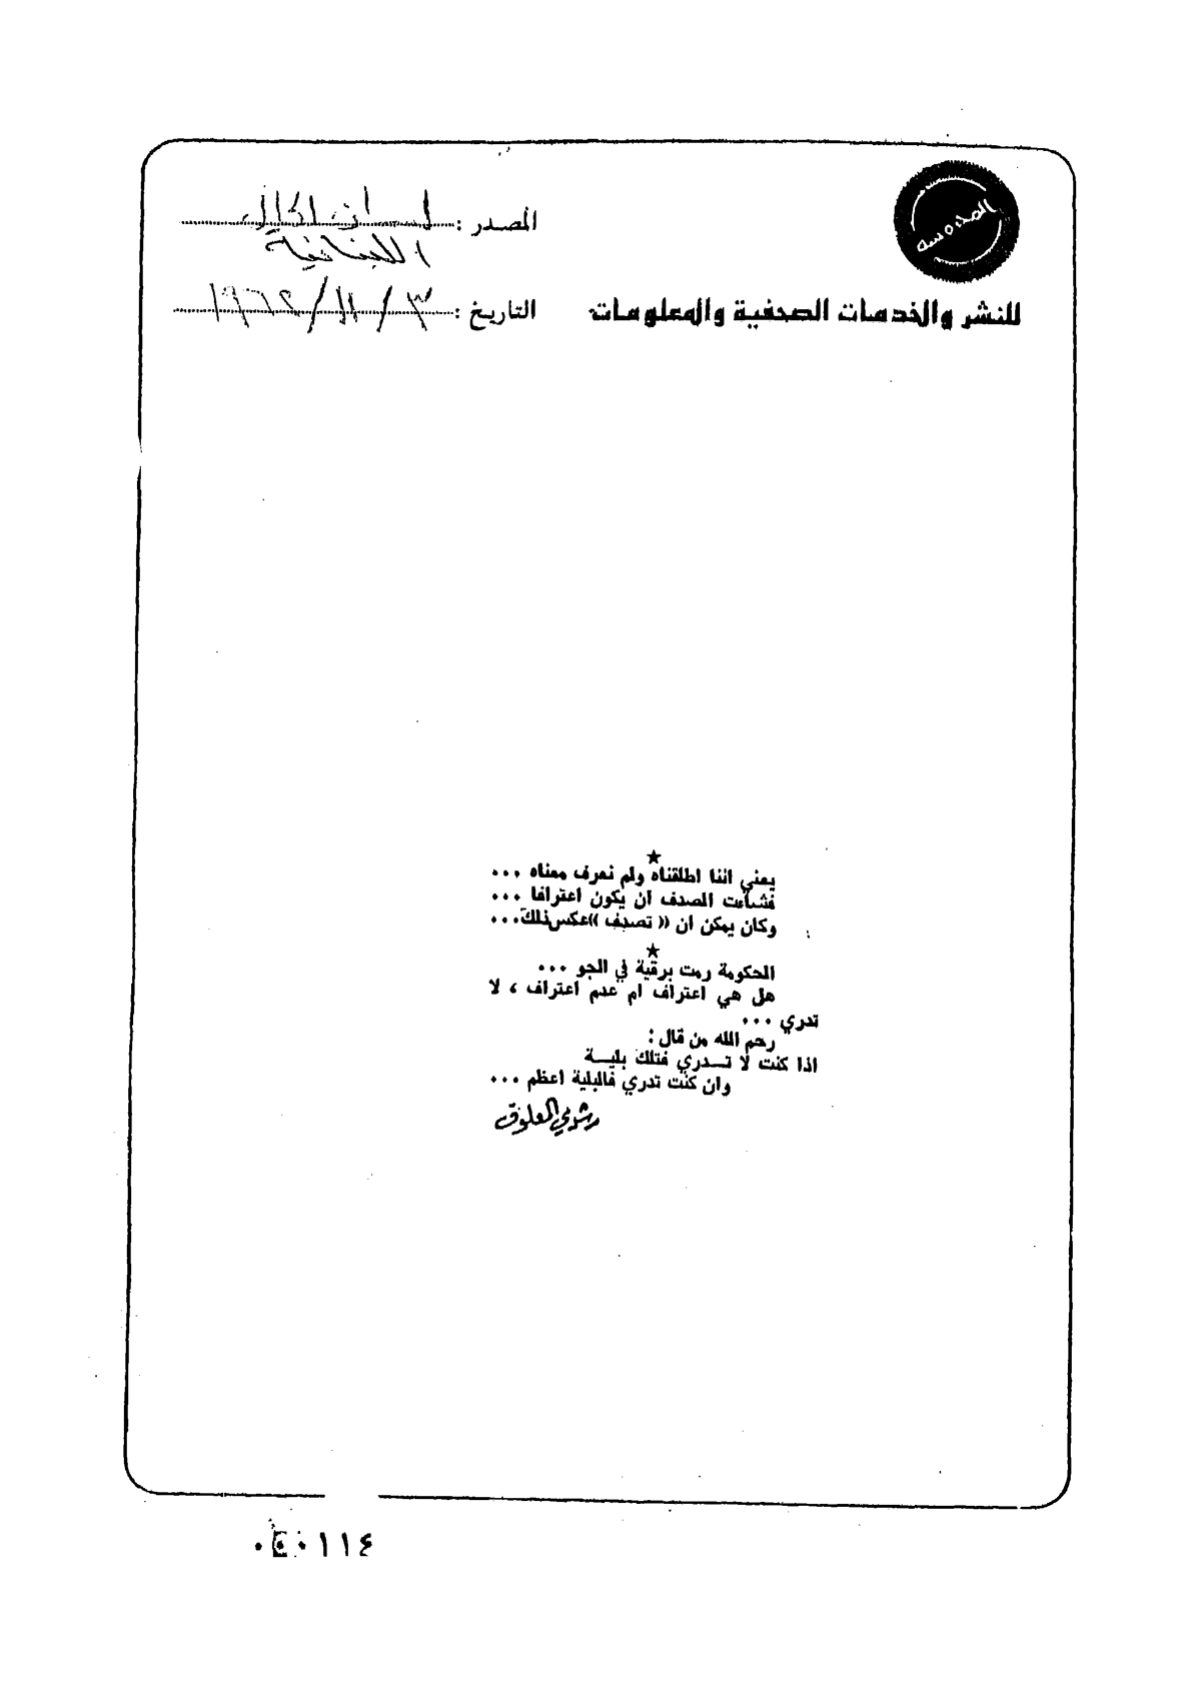 المصدر : لسان الحال
اللبنانية
للنشر والخدمات الصحفية والمعلومات
التاريخ : ٣ / ١١ / ١٩٦٢
★
يعني اننا اطلقناه ولم نعرف معناه ...
فشاءت الصدف ان يكون اعترافا ...
وكان يمكن ان (( تصدف )) عكس ذلك ...
★
الحكومة رمت برقية في الجو ...
هل هي اعتراف ام عدم اعتراف ، لا
تدري ...
رحم الله من قال :
اذا كنت لا تــدري فتلك بليــة
وان كنت تدري فالبلية اعظم ...
رشدي المعلوف
١١٤